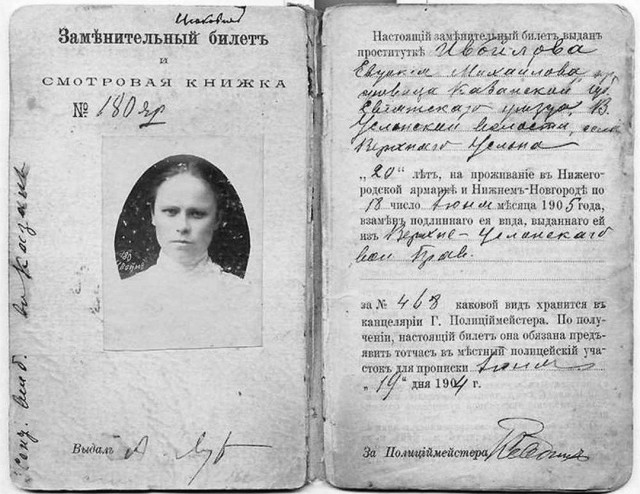 Замѣнительный билетъ
и
СМОТРОВАЯ КНИЖКА
№ 180 яр
Выдалъ
Настоящій замѣнительный билетъ выданъ
проституткѣ
Евдокія Михайлова
Казанской губ.
Свіяжскаго уѣзда, В.
Услонской волости, села
Верхняго Услона
„20" лѣтъ, на проживаніе въ Нижего-
родской ярмаркѣ и Нижнемъ-Новгородѣ по
18 число Іюня мѣсяца 1905 года,
взамѣнъ подлиннаго ея вида, выданнаго ей
изъ Верхне-Услонскаго
вол Прав.
за № 468 каковой видъ хранится въ
канцеляріи Г. Полиціймейстера. По полу-
ченіи, настоящій билетъ она обязана предъ-
явить тотчасъ въ мѣстный полицейскій уча-
стокъ для прописки Іюня
„19" дня 1904 г.
За Полиціймейстера